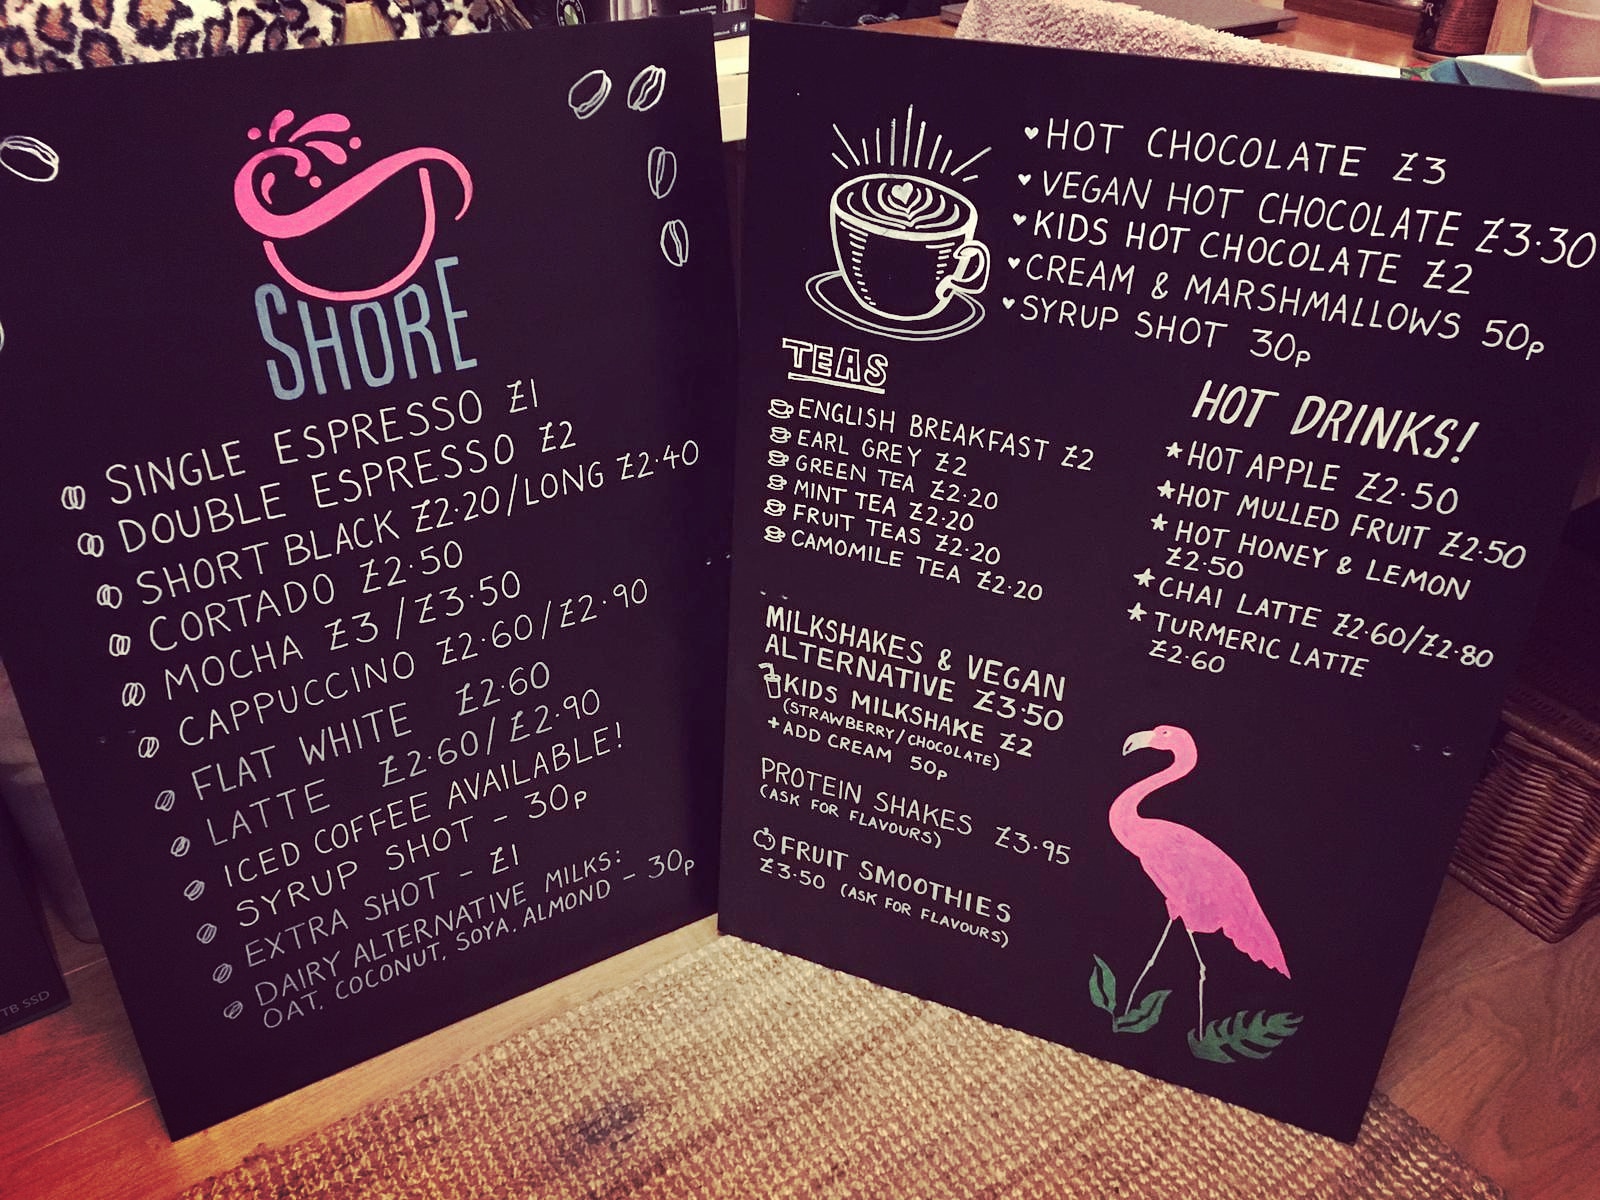 SHORE
SINGLE ESPRESSO £1
DOUBLE ESPRESSO £2
SHORT BLACK £2.20/LONG £2.40
CORTADO £2.50
MOCHA £3/£3.50
CAPPUCCINO £2.60/£2.90
FLAT WHITE £2.60
LATTE £2.60/£2.90
ICED COFFEE AVAILABLE!
SYRUP SHOT - 30p
EXTRA SHOT - £1
DAIRY ALTERNATIVE MILKS:
OAT, COCONUT, SOYA, ALMOND - 30p
♥HOT CHOCOLATE £3
♥VEGAN HOT CHOCOLATE £3.30
♥KIDS HOT CHOCOLATE £2
♥CREAM & MARSHMALLOWS 50p
♥SYRUP SHOT 30p
TEAS
ENGLISH BREAKFAST £2
EARL GREY £2
GREEN TEA £2.20
MINT TEA £2.20
FRUIT TEAS £2.20
CAMOMILE TEA £2.20
HOT DRINKS!
★HOT APPLE £2.50
★HOT MULLED FRUIT £2.50
★HOT HONEY & LEMON
£2.50
★CHAI LATTE £2.60/£2.80
★TURMERIC LATTE
£2.60
MILKSHAKES & VEGAN
ALTERNATIVE £3.50
KIDS MILKSHAKE £2
(STRAWBERRY/CHOCOLATE)
+ADD CREAM 50p
PROTEIN SHAKES £3.95
(ASK FOR FLAVOURS)
FRUIT SMOOTHIES
£3.50 (ASK FOR FLAVOURS)
TB SSD